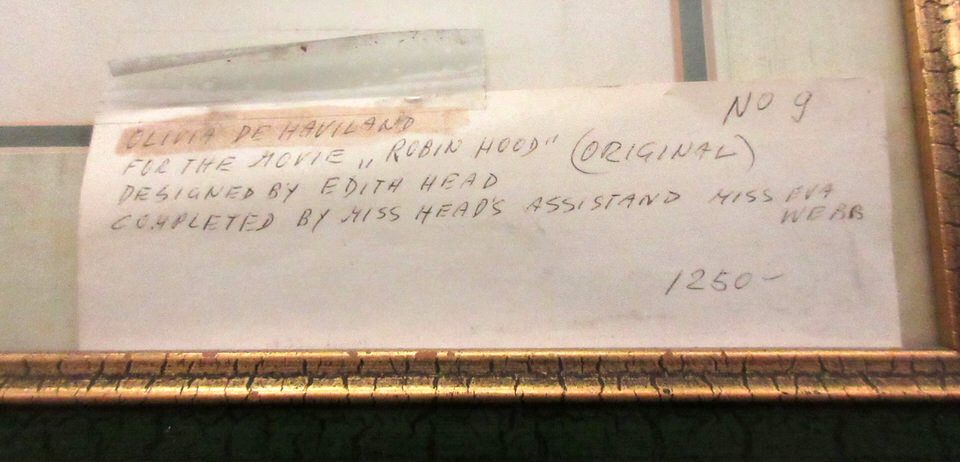 NO 9
OLIVIA DE HAVILAND
FOR THE MOVIE „ROBIN HOOD" (ORIGINAL)
DESIGNED BY EDITH HEAD
COMPLETED BY MISS HEAD'S ASSISTAND MISS EVA
WEBB
1250-